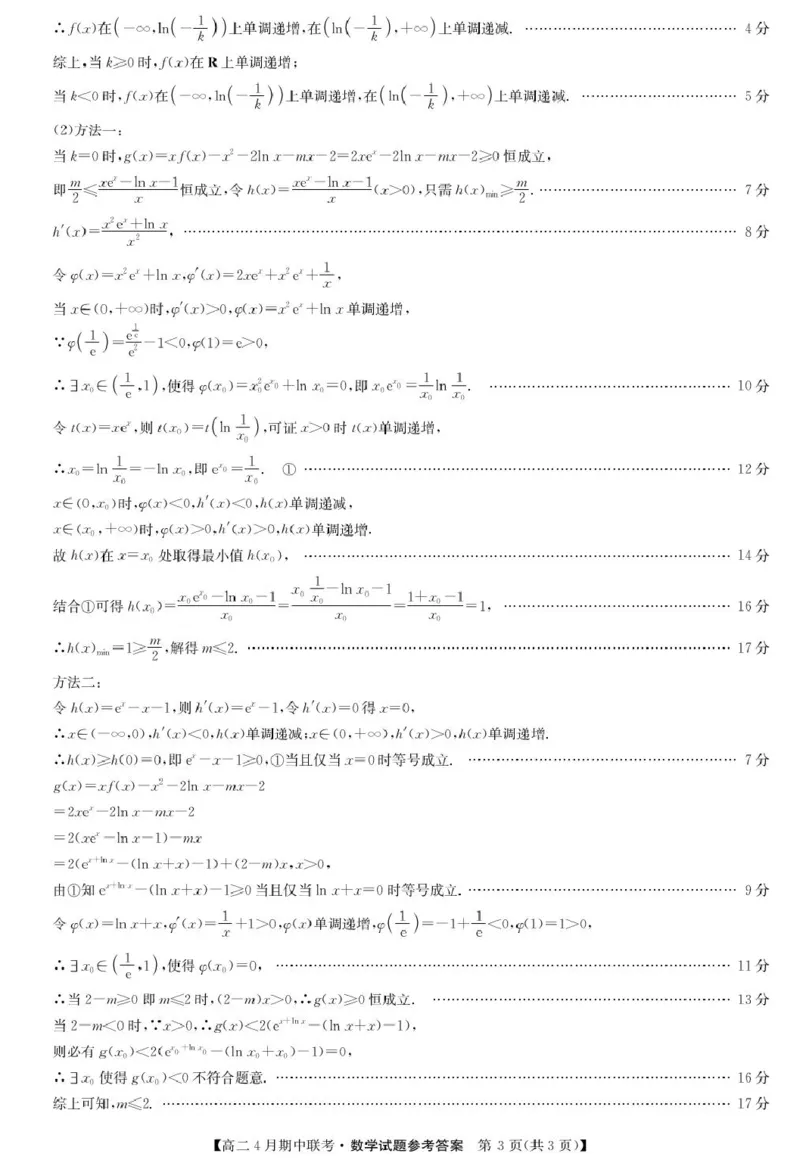 ∴f(x)在(-∞,ln(-1/k))上单调递增,在(ln(-1/k),+∞)上单调递减. …… 4分
综上,当k≥0时,f(x)在R上单调递增;
当k<0时,f(x)在(-∞,ln(-1/k))上单调递增,在(ln(-1/k),+∞)上单调递减. …… 5分
(2)方法一:
当k=0时,g(x)=xf(x)-x²-2ln x-mx-2=2xeˣ-2ln x-mx-2≥0恒成立,
即m/2≤(xeˣ-ln x-1)/x恒成立,令h(x)=(xeˣ-ln x-1)/x(x>0),只需h(x)min≥m/2. …… 7分
h′(x)=(x²eˣ+ln x)/x², …… 8分
令φ(x)=x²eˣ+ln x,φ′(x)=2xeˣ+x²eˣ+1/x,
当x∈(0,+∞)时,φ′(x)>0,φ(x)=x²eˣ+ln x单调递增,
∵φ(1/e)=e^(1/e)/e²-1<0,φ(1)=e>0,
∴∃x₀∈(1/e,1),使得φ(x₀)=x₀²e^(x₀)+ln x₀=0,即x₀e^(x₀)=1/x₀ ln 1/x₀. …… 10分
令t(x)=xeˣ,则t(x₀)=t(ln 1/x₀),可证x>0时t(x)单调递增,
∴x₀=ln 1/x₀=-ln x₀,即e^(x₀)=1/x₀. ① …… 12分
x∈(0,x₀)时,φ(x)<0,h′(x)<0,h(x)单调递减,
x∈(x₀,+∞)时,φ(x)>0,h′(x)>0,h(x)单调递增.
故h(x)在x=x₀处取得最小值h(x₀), …… 14分
结合①可得h(x₀)=(x₀e^(x₀)-ln x₀-1)/x₀=(x₀ 1/x₀-ln x₀-1)/x₀=(1+x₀-1)/x₀=1, …… 16分
∴h(x)min=1≥m/2,解得m≤2. …… 17分
方法二:
令h(x)=eˣ-x-1,则h′(x)=eˣ-1,令h′(x)=0得x=0,
∴x∈(-∞,0),h′(x)<0,h(x)单调递减;x∈(0,+∞),h′(x)>0,h(x)单调递增.
∴h(x)≥h(0)=0,即eˣ-x-1≥0,①当且仅当x=0时等号成立. …… 7分
g(x)=xf(x)-x²-2ln x-mx-2
=2xeˣ-2ln x-mx-2
=2(xeˣ-ln x-1)-mx
=2(e^(x+ln x)-(ln x+x)-1)+(2-m)x,x>0,
由①知e^(x+ln x)-(ln x+x)-1≥0当且仅当ln x+x=0时等号成立. …… 9分
令φ(x)=ln x+x,φ′(x)=1/x+1>0,φ(x)单调递增,φ(1/e)=-1+1/e<0,φ(1)=1>0,
∴∃x₀∈(1/e,1),使得φ(x₀)=0, …… 11分
∴当2-m≥0即m≤2时,(2-m)x>0,∴g(x)≥0恒成立. …… 13分
当2-m<0时,∵x>0,∴g(x)<2(e^(x+ln x)-(ln x+x)-1),
则必有g(x₀)<2(e^(x₀+ln x₀)-(ln x₀+x₀)-1)=0,
∴∃x₀使得g(x₀)<0不符合题意. …… 16分
综上可知,m≤2. …… 17分
【高二4月期中联考·数学试题参考答案 第3页(共3页)】